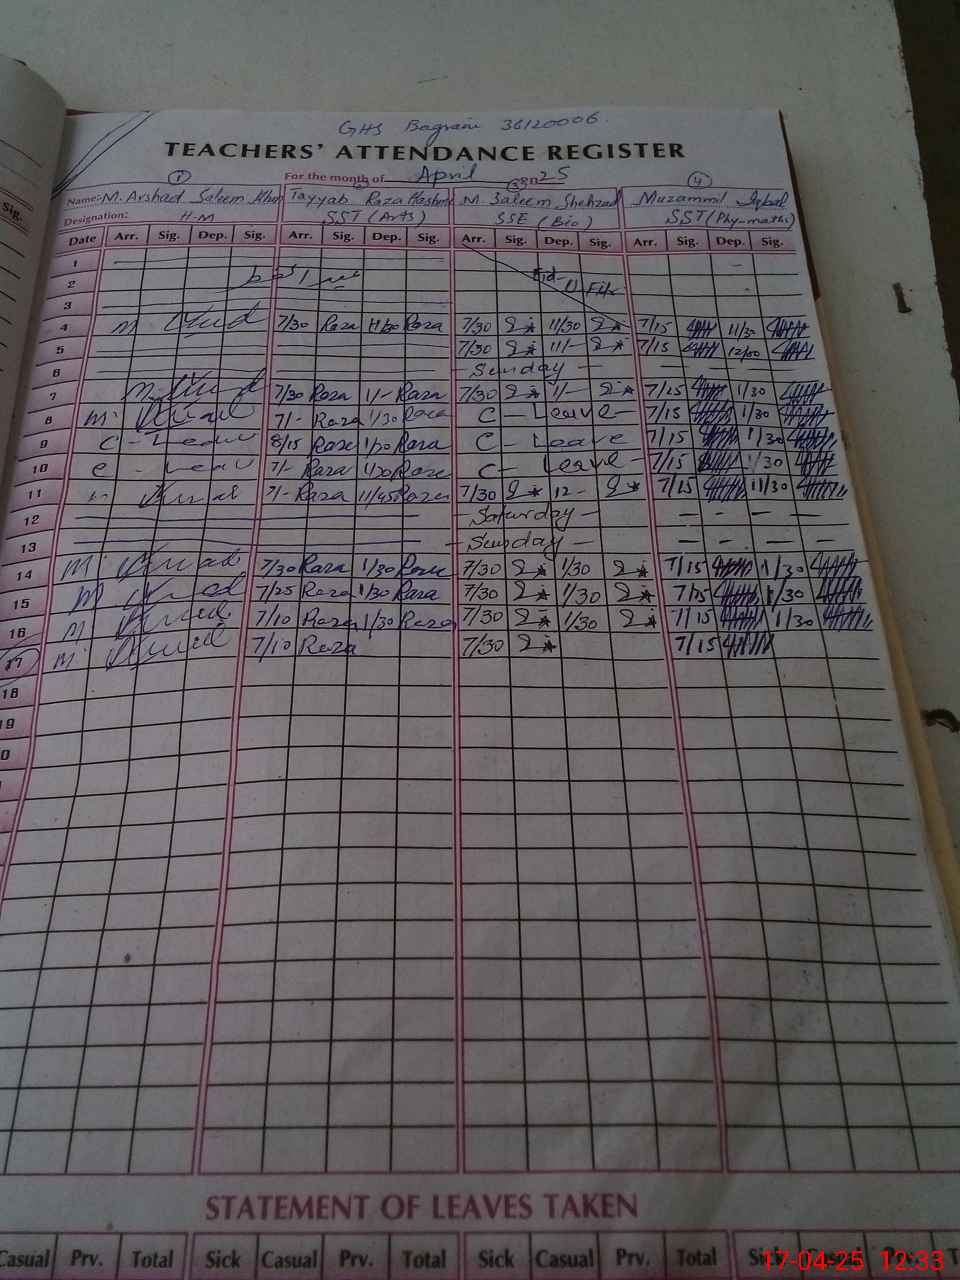 GHS Bagrain 36120006.
TEACHERS' ATTENDANCE REGISTER
For the month of April 2025
1 2 3 4
Name: M. Arshad Saleem Khan Tayyab Raza Hashmi M. Saleem Shehzad Muzammil Iqbal
Designation: H-M SST (Arts) SSE (Bio) SST (Phy-maths)
Sig.
Date Arr. Sig. Dep. Sig. Arr. Sig. Dep. Sig. Arr. Sig. Dep. Sig. Arr. Sig. Dep. Sig.
1
2 Eid-ul-Fitr
3
4 7/30 Raza 11/30 Raza 7/30 11/30 7/15 11/30
5 7/30 11/- 7/15 12/00
6 - Sunday -
7 7/30 Raza 1/- Raza 7/30 1/- 7/15 1/30
8 7/- Raza 1/30 Raza C - Leave - 7/15 1/30
9 C - Leave 8/15 Raza 1/30 Raza C - Leave 7/15 1/30
10 C - Leave 7/- Raza 1/30 Raza C - Leave - 7/15 1/30
11 7/- Raza 11/45 Raza 7/30 12- 7/15 11/30
12 - Saturday -
13 - Sunday -
14 7/30 Raza 1/30 Raza 7/30 1/30 7/15 1/30
15 7/25 Raza 1/30 Raza 7/30 1/30 7/15 1/30
16 7/10 Raza 1/30 Raza 7/30 1/30 7/15 1/30
17 7/10 Raza 7/30 7/15
18
19
STATEMENT OF LEAVES TAKEN
Casual Prv. Total Sick Casual Prv. Total Sick Casual Prv. Total Sick Casual
17-04-25 12:33